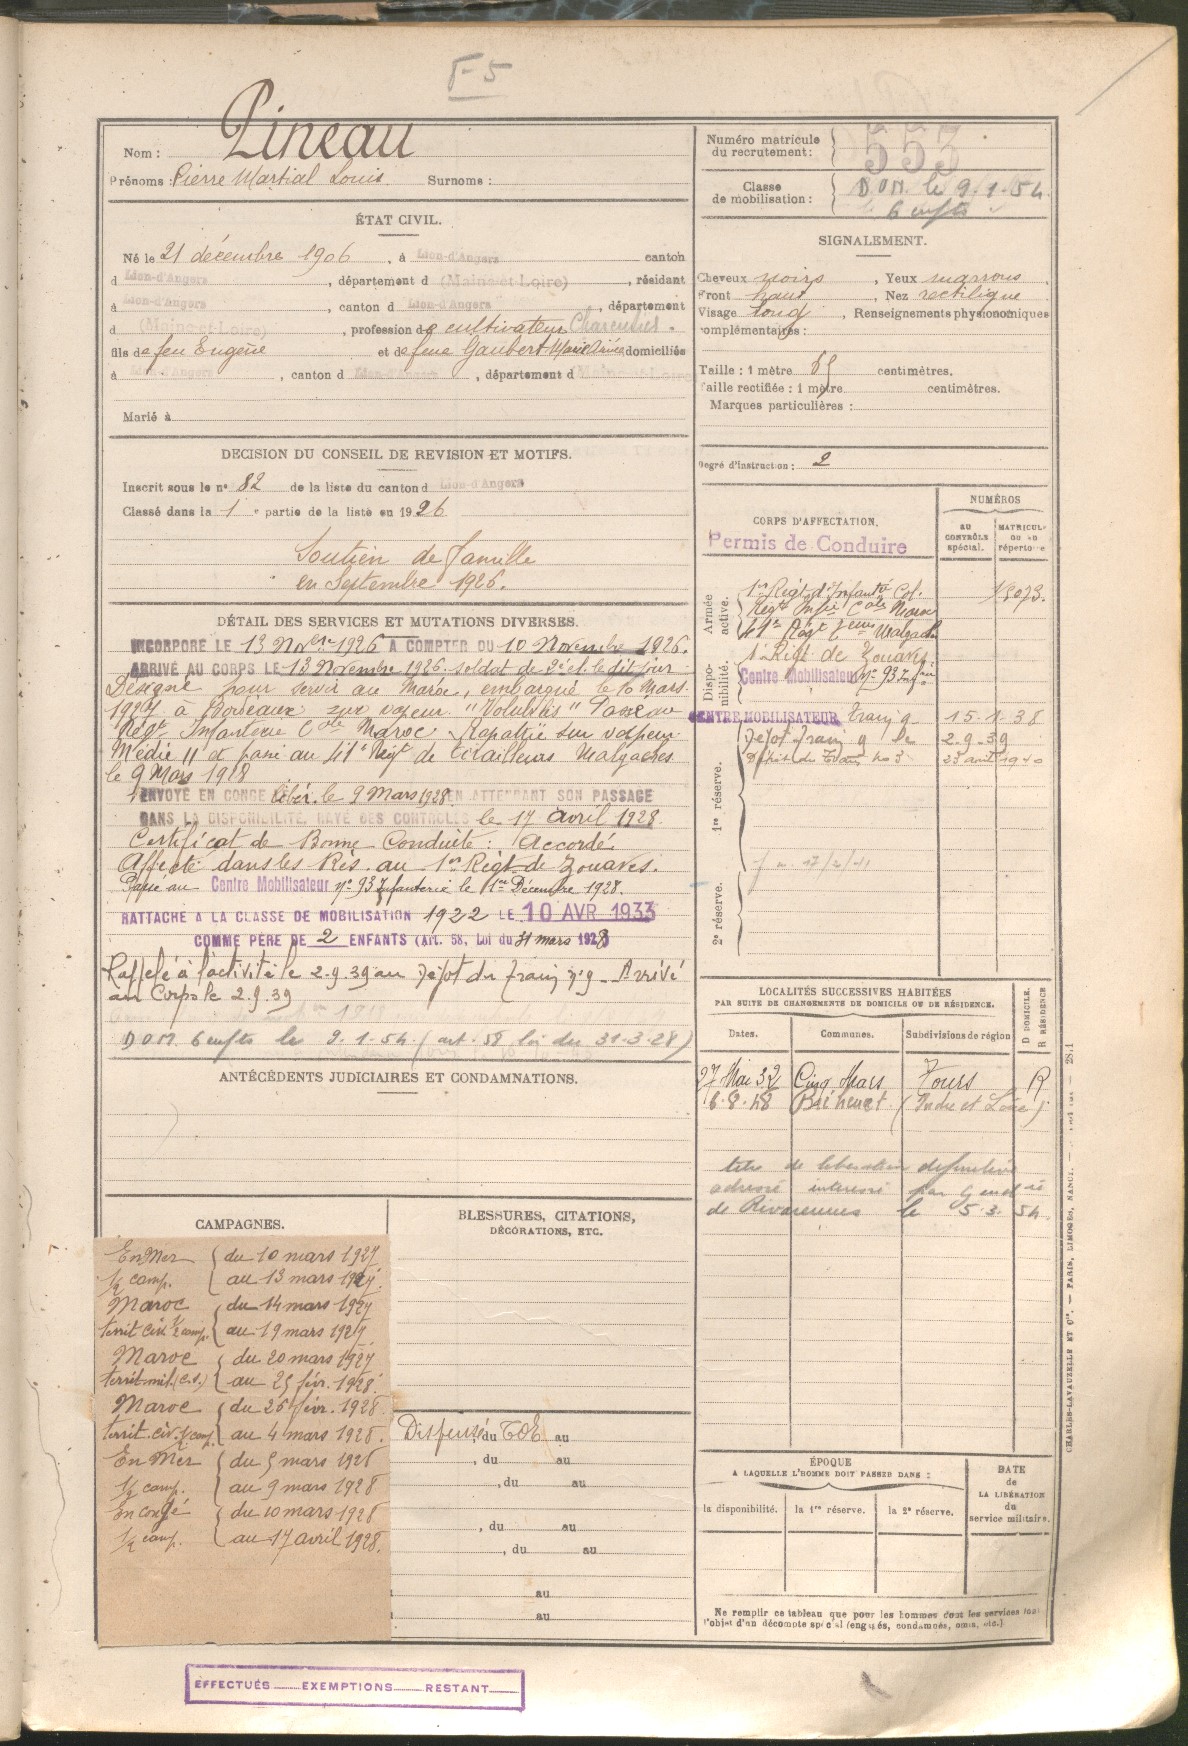 F-5
Nom : Pineau
Prénoms : Pierre Martial Louis Surnoms :
ÉTAT CIVIL.
Né le 21 décembre 1906, à Lion-d'Angers canton
d Lion-d'Angers, département d (Maine-et-Loire), résidant
à Lion-d'Angers, canton d Lion-d'Angers, département
d (Maine-et-Loire), profession de cultivateur
fils de feu Eugène et de feue Gaubert Marie domiciliés
à Lion-d'Angers, canton d Lion-d'Angers, département d Maine-et-Loire
Marié à
DECISION DU CONSEIL DE REVISION ET MOTIFS.
Inscrit sous le n° 82 de la liste du canton d Lion-d'Angers
Classé dans la 1e partie de la liste en 1926
Soutien de famille
en Septembre 1926.
DÉTAIL DES SERVICES ET MUTATIONS DIVERSES.
INCORPORÉ LE 13 Nobre 1926 A COMPTER DU 10 Novembre 1926.
ARRIVÉ AU CORPS LE 13 Novembre 1926. soldat de 2e cl. le dit jour
Désigné pour servir au Maroc, embarqué le 10 Mars
1927 à Bordeaux sur vapeur "Volubilis" Passé au
Régt Infanterie Cole Maroc. Rapatrié sur vapeur
Médie II & passé au 41e Régt de Tirailleurs Malgaches
le 9 Mars 1928
ENVOYÉ EN CONGÉ libér. le 9 Mars 1928 EN ATTENDANT SON PASSAGE
DANS LA DISPONIBILITÉ, RAYÉ DES CONTROLES le 17 avril 1928.
Certificat de Bonne Conduite : Accordé
Affecté dans les Rés. au 1er Régt de Zouaves.
Passé au Centre Mobilisateur n° 93 Infanterie le 1er Décembre 1928.
RATTACHÉ A LA CLASSE DE MOBILISATION 1922 LE 10 AVR 1933
COMME PÈRE DE 2 ENFANTS (Art. 58, Loi du 31 mars 1928)
Rappelé à l'activité le 2.9.39 au Dépôt du Train n°9 - Arrivé
au Corps le 2.9.39
DOM 6 enfts le 9.1.54 (art. 58 loi du 31.3.28)
ANTÉCÉDENTS JUDICIAIRES ET CONDAMNATIONS.
CAMPAGNES.
En Mer du 10 mars 1927
1/2 camp. au 13 mars 1927.
Maroc du 14 mars 1927
territ. civ. 1/2 camp. au 19 mars 1927
Maroc du 20 mars 1927
territ. mil. (C.S.) au 25 fév. 1928.
Maroc du 26 fév. 1928
territ. civ. 1/2 camp. au 4 mars 1928.
En Mer du 5 mars 1928
1/2 camp. au 9 mars 1928
En congé du 10 mars 1928
1/2 camp. au 17 avril 1928.
BLESSURES, CITATIONS,
DÉCORATIONS, ETC.
Dispensé, du TOE au
, du au
, du au
, du au
, du au
au
au
EFFECTUÉS EXEMPTIONS RESTANT
Numéro matricule
du recrutement : 553
Classe
de mobilisation : DOM. le 9.1.54.
6 enfts
SIGNALEMENT.
Cheveux noirs, Yeux marrons
Front haut, Nez rectiligne
Visage long, Renseignements physionomiques
complémentaires :
Taille : 1 mètre 65 centimètres.
Taille rectifiée : 1 mètre centimètres.
Marques particulières :
Degré d'instruction : 2
CORPS D'AFFECTATION.
NUMÉROS
AU CONTRÔLE spécial.
MATRICULE OU AU répertoire
Permis de Conduire
Armée active.
1er Régt d'Infantie Col. 13073.
Régt Infie Cole Maroc
41e Régt Malgaches
Disponibilité.
1er Régt de Zouaves
Centre Mobilisateur n° 93 Infie
CENTRE MOBILISATEUR Train 9 15.1.38
Dépôt Train 9 le 2.9.39
Dépôt du Train no 9 1940
1re réserve.
2e réserve.
LOCALITÉS SUCCESSIVES HABITÉES
PAR SUITE DE CHANGEMENTS DE DOMICILE OU DE RÉSIDENCE.
Dates. Communes. Subdivisions de région
D DOMICILE. R RÉSIDENCE
27 Mai 32 Cinq Mars Tours R
6.8.48 (Indre et Loire)
titre de libération définitive
adressé intéressé par
de Rivarennes le 5.3.54.
ÉPOQUE
A LAQUELLE L'HOMME DOIT PASSER DANS :
la disponibilité. la 1re réserve. la 2e réserve.
DATE
de
LA LIBÉRATION
du
service militaire.
Ne remplir ce tableau que pour les hommes dont les services font
l'objet d'un décompte spécial (engagés, condamnés, omis, etc.)
CHARLES-LAVAUZELLE ET Cie. — PARIS, LIMOGES, NANCY.